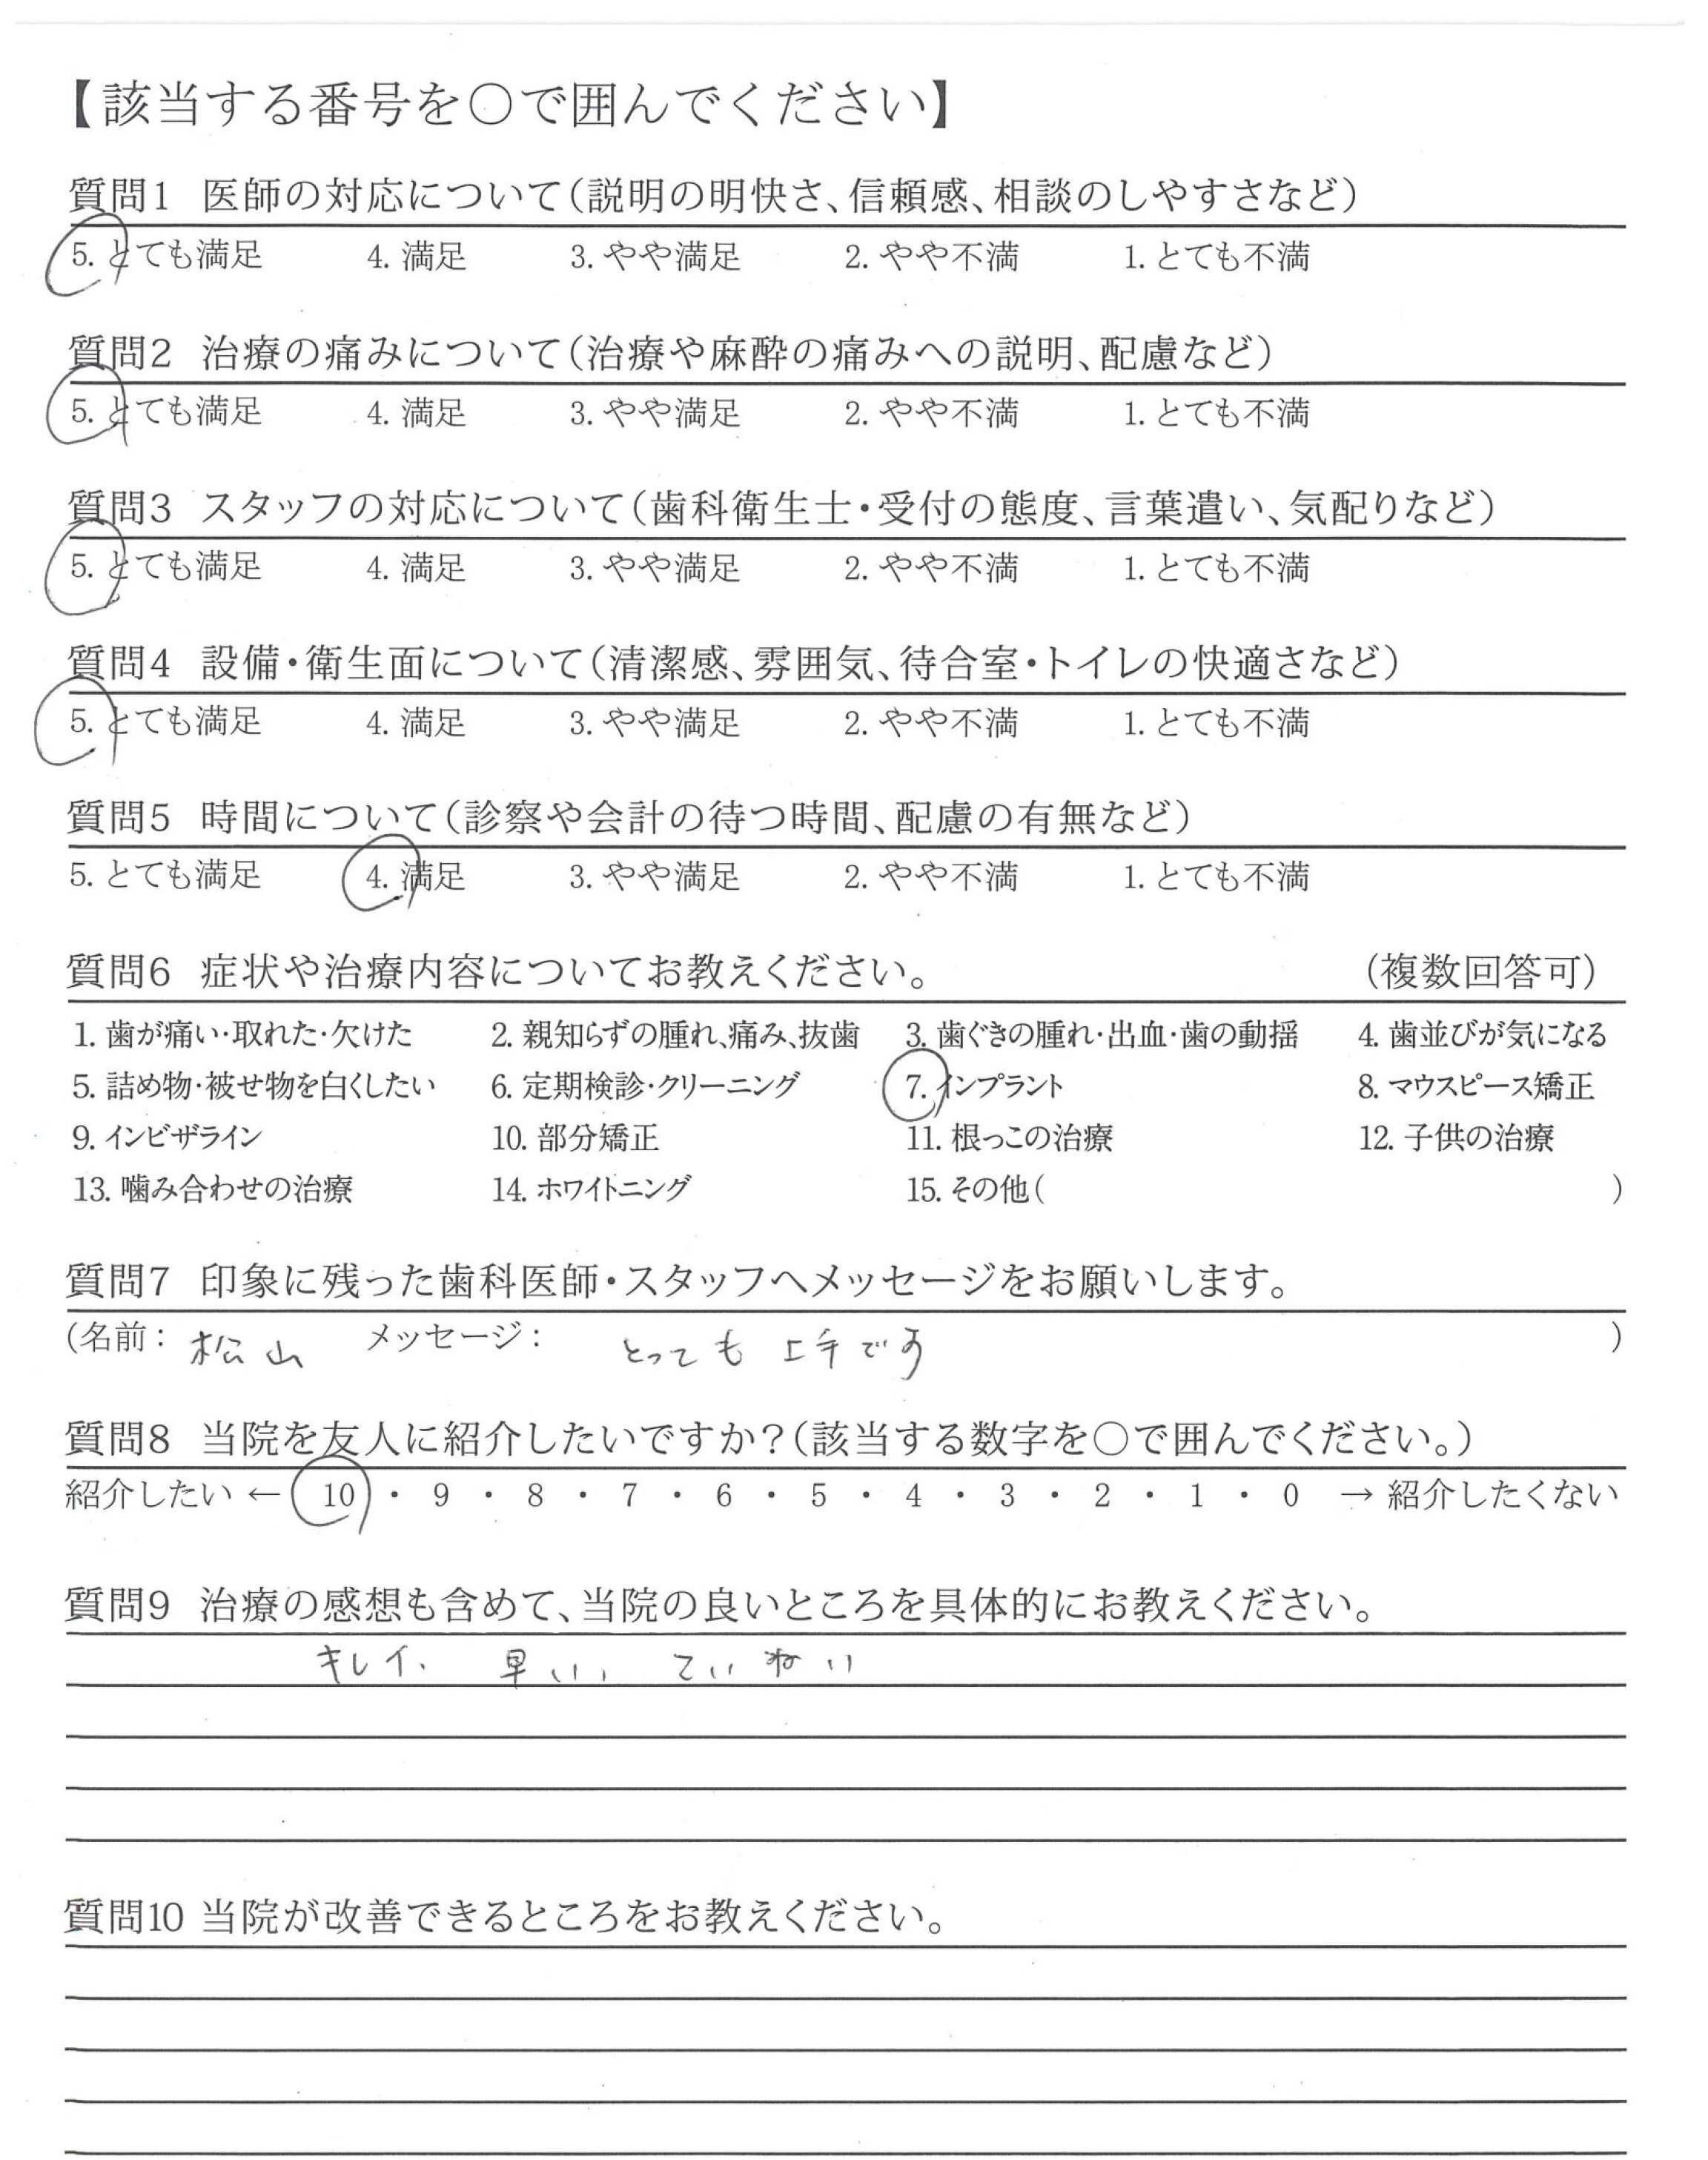 【該当する番号を○で囲んでください】
質問1 医師の対応について(説明の明快さ、信頼感、相談のしやすさなど)
5. とても満足 4. 満足 3. やや満足 2. やや不満 1. とても不満
質問2 治療の痛みについて(治療や麻酔の痛みへの説明、配慮など)
5. とても満足 4. 満足 3. やや満足 2. やや不満 1. とても不満
質問3 スタッフの対応について(歯科衛生士・受付の態度、言葉遣い、気配りなど)
5. とても満足 4. 満足 3. やや満足 2. やや不満 1. とても不満
質問4 設備・衛生面について(清潔感、雰囲気、待合室・トイレの快適さなど)
5. とても満足 4. 満足 3. やや満足 2. やや不満 1. とても不満
質問5 時間について(診察や会計の待つ時間、配慮の有無など)
5. とても満足 4. 満足 3. やや満足 2. やや不満 1. とても不満
質問6 症状や治療内容についてお教えください。 (複数回答可)
1. 歯が痛い・取れた・欠けた 2. 親知らずの腫れ、痛み、抜歯 3. 歯ぐきの腫れ・出血・歯の動揺 4. 歯並びが気になる
5. 詰め物・被せ物を白くしたい 6. 定期検診・クリーニング 7. インプラント 8. マウスピース矯正
9. インビザライン 10. 部分矯正 11. 根っこの治療 12. 子供の治療
13. 噛み合わせの治療 14. ホワイトニング 15. その他( )
質問7 印象に残った歯科医師・スタッフへメッセージをお願いします。
(名前: 松山 メッセージ: とっても 上手です )
質問8 当院を友人に紹介したいですか?(該当する数字を○で囲んでください。)
紹介したい ← 10 ・ 9 ・ 8 ・ 7 ・ 6 ・ 5 ・ 4 ・ 3 ・ 2 ・ 1 ・ 0 → 紹介したくない
質問9 治療の感想も含めて、当院の良いところを具体的にお教えください。
キレイ、 早い、 ていねい
質問10 当院が改善できるところをお教えください。